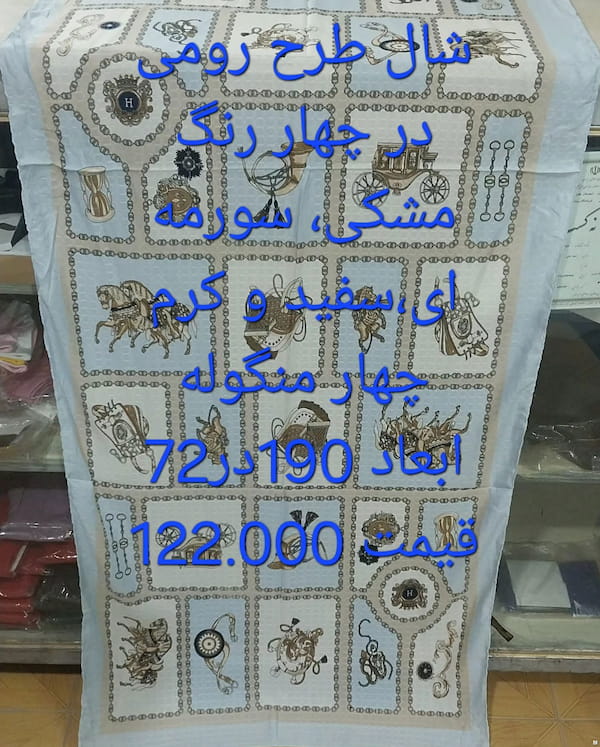 شال طرح رومی
در چهار رنگ
مشکی، سورمه
ای،سفید و کرم
چهار منگوله
ابعاد 190در72
قیمت 122.000
H
H